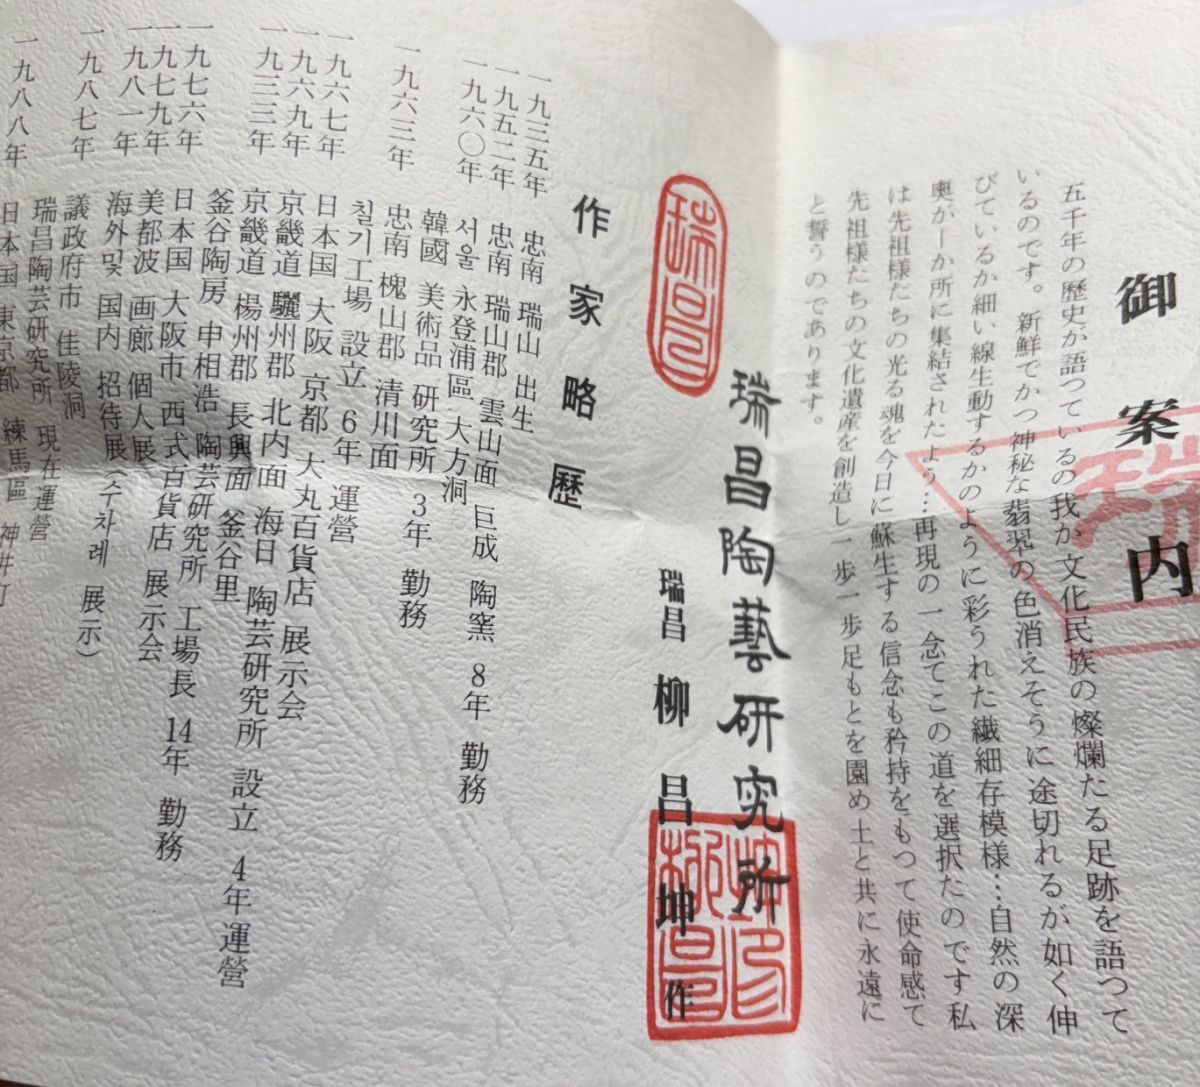 御案内
五千年の歴史が語つているの我か文化民族の燦爛たる足跡を語つて
いるのです。新鮮でかつ神秘な翡翠の色消えそうに途切れるが如く伸
びているか細い線生動するかのように彩うれた繊細存模様…自然の深
奥が一か所に集結されたよう…再現の一念てこの道を選択たのです私
は先祖様たちの光る魂を今日に蘇生する信念も矜持をもつて使命感て
先祖様たちの文化遺産を創造し一歩一歩足もとを園め土と共に永遠に
と誓うのであります。
瑞昌陶藝研究所
瑞昌 柳昌坤 作
瑞昌
作家略歷
一九三五年 忠南 瑞山 出生
一九五二年 忠南 瑞山郡 雲山面 巨成 陶窯 8年 勤務
一九六〇年 서울 永登浦區 大方洞
韓國 美術品 研究所 3年 勤務
一九六三年 忠南 槐山郡 清川面
칠기工場 設立 6年 運營
一九六七年 日本国 大阪 京都 大丸百貨店 展示会
一九六九年 京畿道 驪州郡 北内面 海日 陶芸研究所 設立 4年運營
一九三三年 京畿道 楊州郡 長興面 釜谷里
釜谷陶房 申相浩 陶芸研究所 工場長 14年 勤務
一九七六年 日本国 大阪市 西式百貨店 展示会
一九七九年 美都波 画廊 個人展
一九八一年 海外및 国内 招待展(수차례 展示)
一九八七年 議政府市 佳陵洞
瑞昌陶芸研究所 現在運營
一九八八年 日本国 東京都 練馬區 神井町